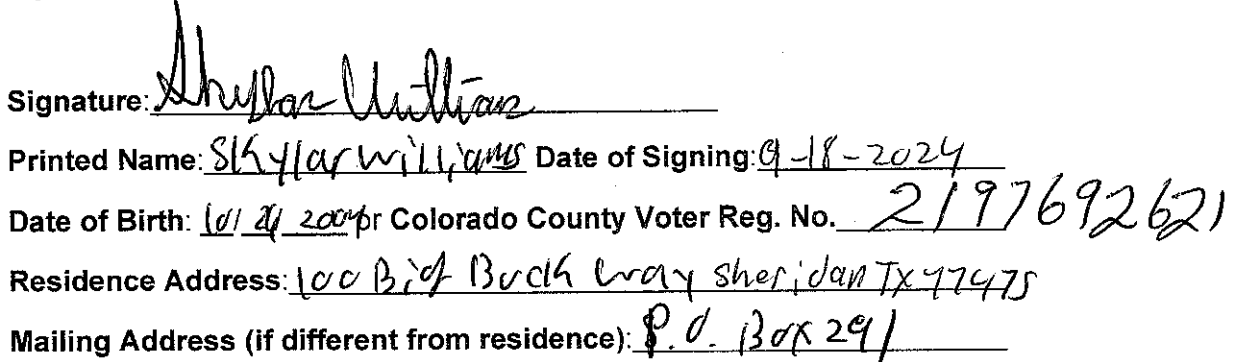 Signature: Skyllar Williams
Printed Name: Skylar Williams Date of Signing: 9-18-2024
Date of Birth: 10/ 2004 or Colorado County Voter Reg. No. 2197692621
Residence Address: 100 Big Buck Way Sheridan TX 77475
Mailing Address (if different from residence): P.O. Box 291